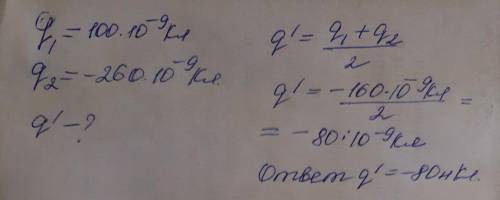 q₁ = 100·10⁻⁹ Кл
q₂ = -260·10⁻⁹ Кл.
q' - ?
q' = (q₁ + q₂)/2
q' = (-160·10⁻⁹ Кл)/2 =
= -80·10⁻⁹ Кл
Ответ q' = -80 нКл.